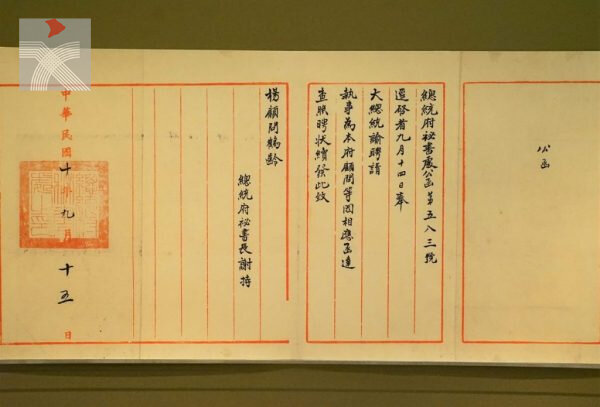 公函
總統府祕書處公函第五八三號
逕啓者九月十四日奉
大總統諭聘請
執事為本府顧問等因相應函達
查照聘狀續發此致
楊顧問鶴齡
總統府祕書長謝持
中華民國十年九月十五日